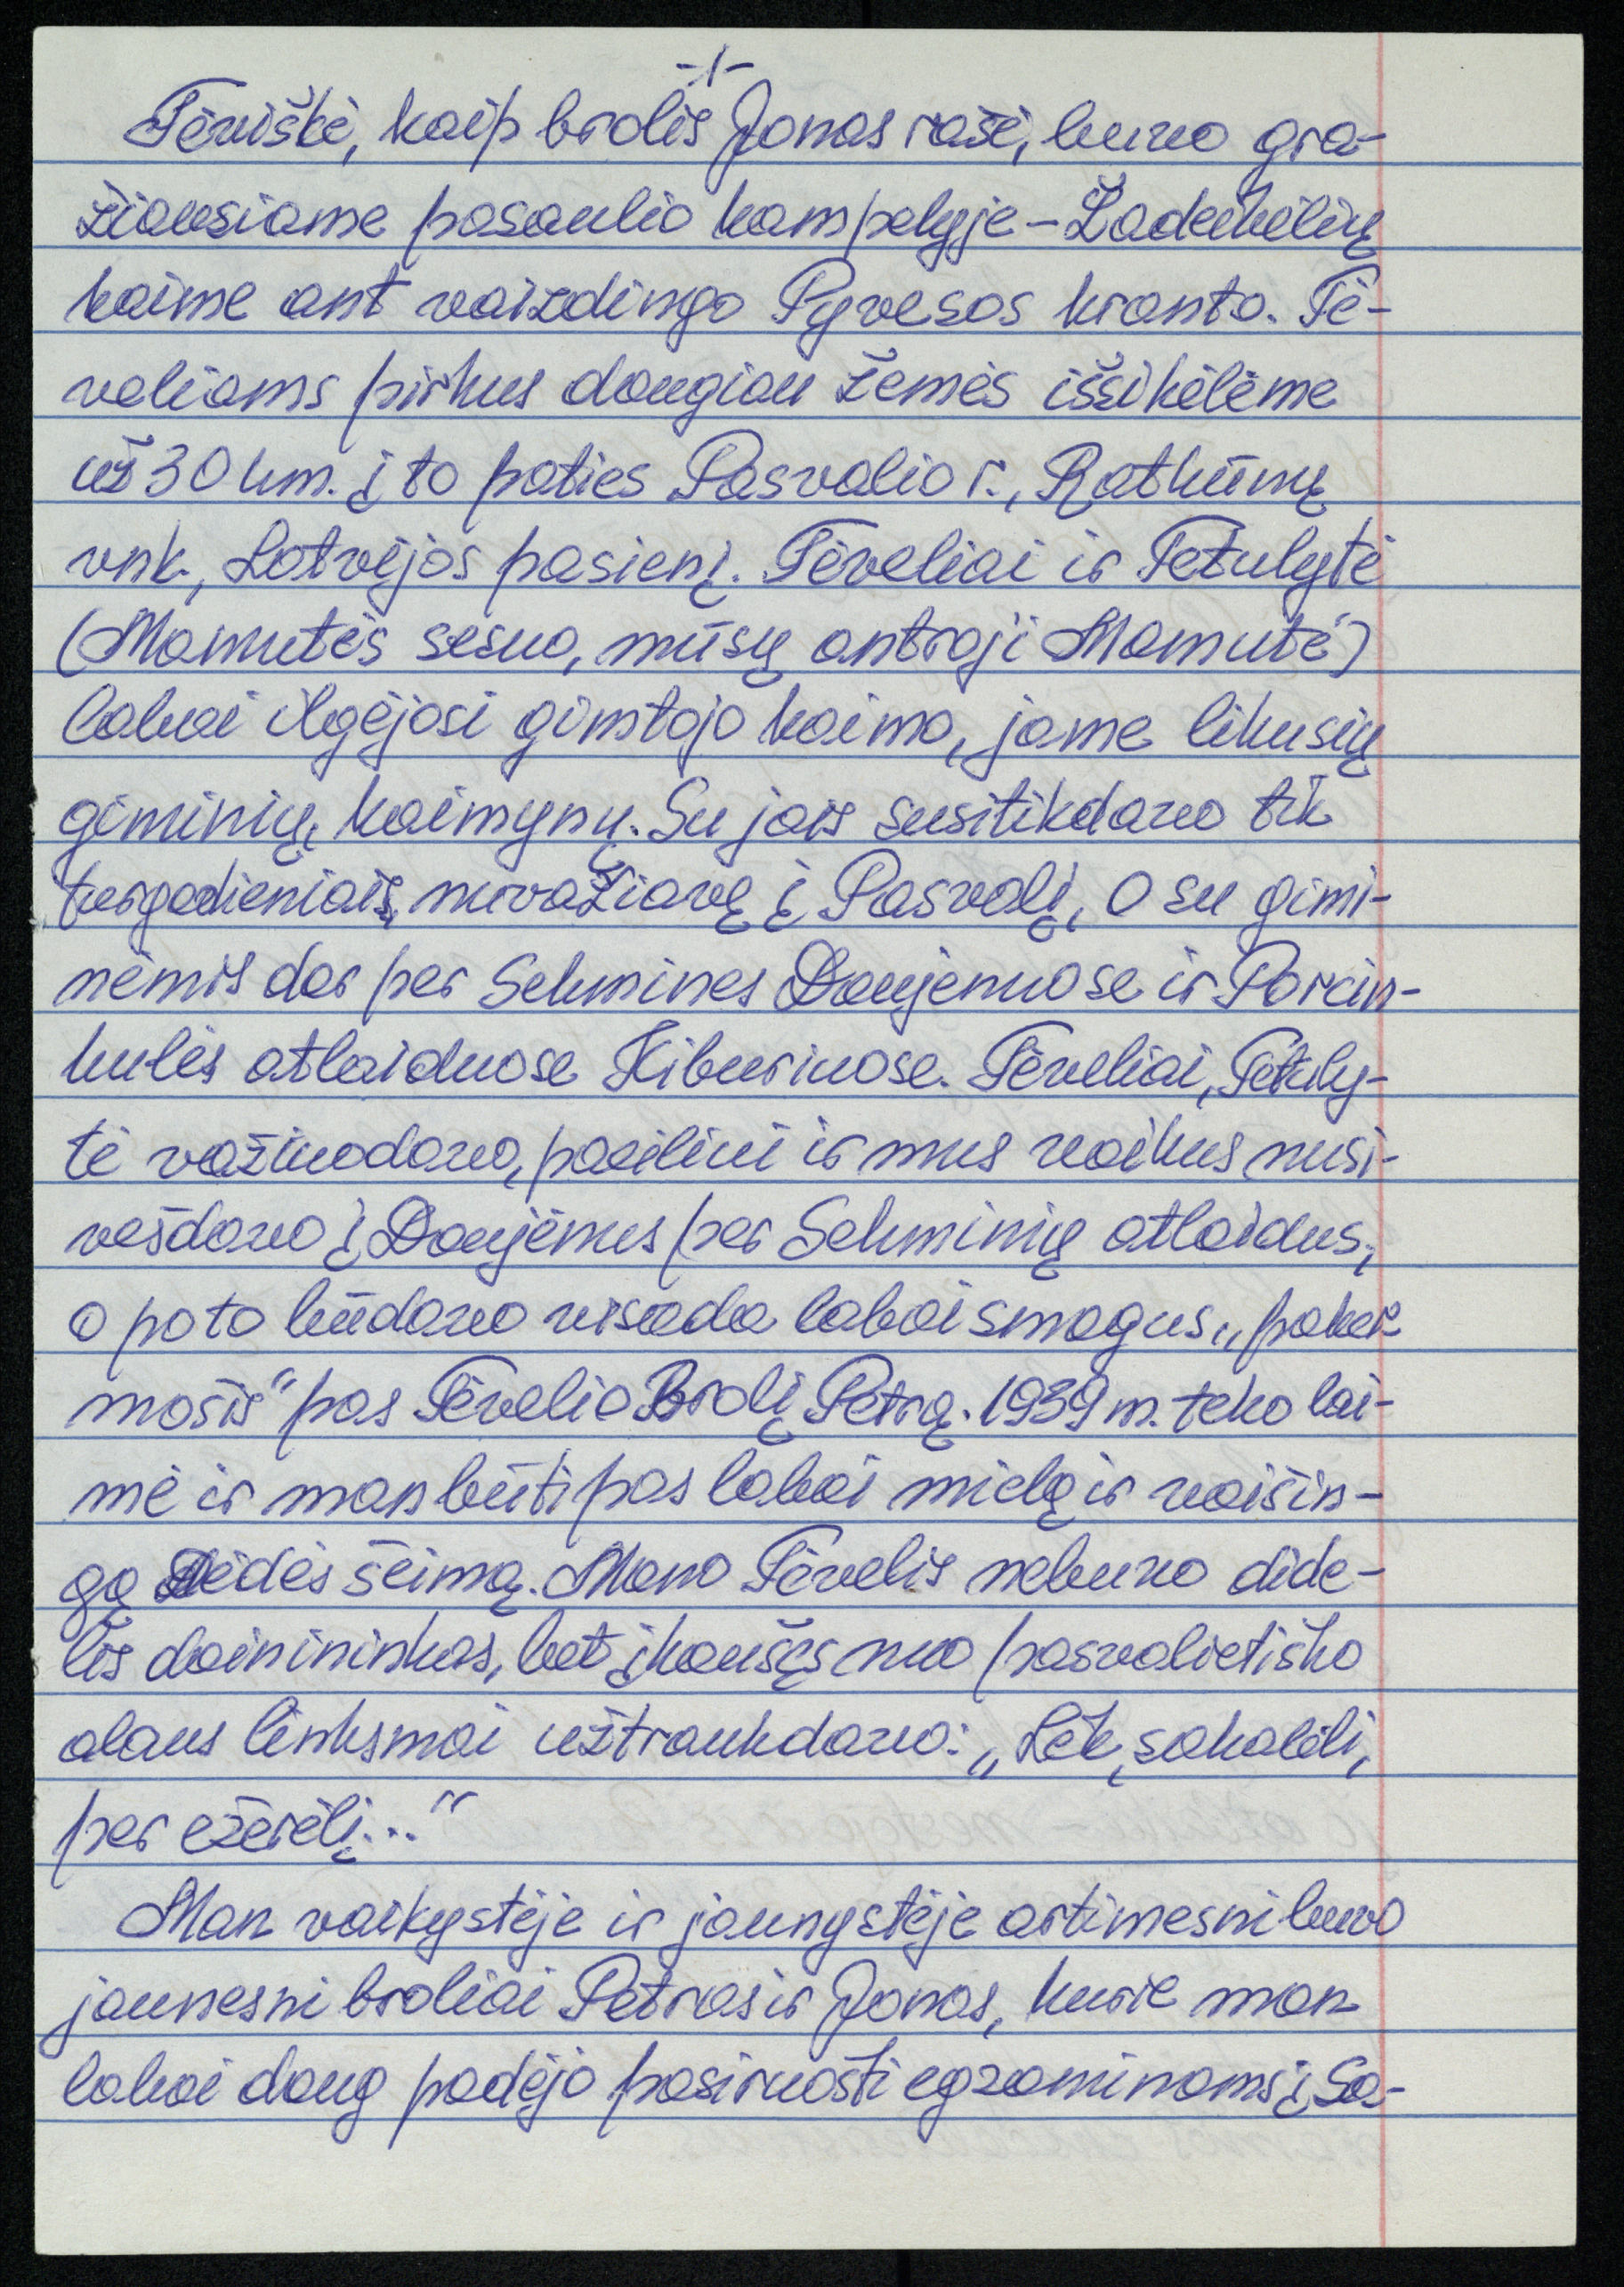 -1-
Tėviškė, kaip brolis Jonas rašė, buvo gra-
žiausiame pasaulio kampelyje – Žadeikėlių
kaime ant vaizdingo Pyvesos kranto. Tė-
veliams pirkus daugiau žemės išsikėlėme
už 30 km. į to paties Pasvalio r., Ratkūnų
vnk., Latvėjos pasienį. Tėveliai ir Tetulytė
(Mamutės sesuo, mūsų antroji Mamutė)
labai ilgėjosi gimtojo kaimo, jame likusių
giminių, kaimynų. Su jais susitikdavo tik
turgadieniais, nuvažiavę į Pasvalį, o su gimi-
nėmis dar per Sekmines Daujėnuose ir Porcin-
kulės atlaiduose Kiburiuose. Tėveliai, Tetuly-
tė važiuodavo, paeiliui ir mus vaikus nusi-
veždavo į Daujėnus per Sekminių atlaidus,
o po to būdavo visada labai smagus „paker-
mošis“ pas Tėvelio Brolį Petrą. 1939 m. teko lai-
mė ir man būti pas labai mielą ir vaišin-
gą Dėdės šeimą. Mano Tėvelis nebuvo dide-
lis dainininkas, bet įkaušęs nuo pasvalietiško
alaus linksmai užtraukdavo: „Lėk, sakalėli,
per ežerėlį...“
Man vaikystėje ir jaunystėje artimesni buvo
jaunesni broliai Petras ir Jonas, kurie man
labai daug padėjo pasiruošti egzaminams į Sa-